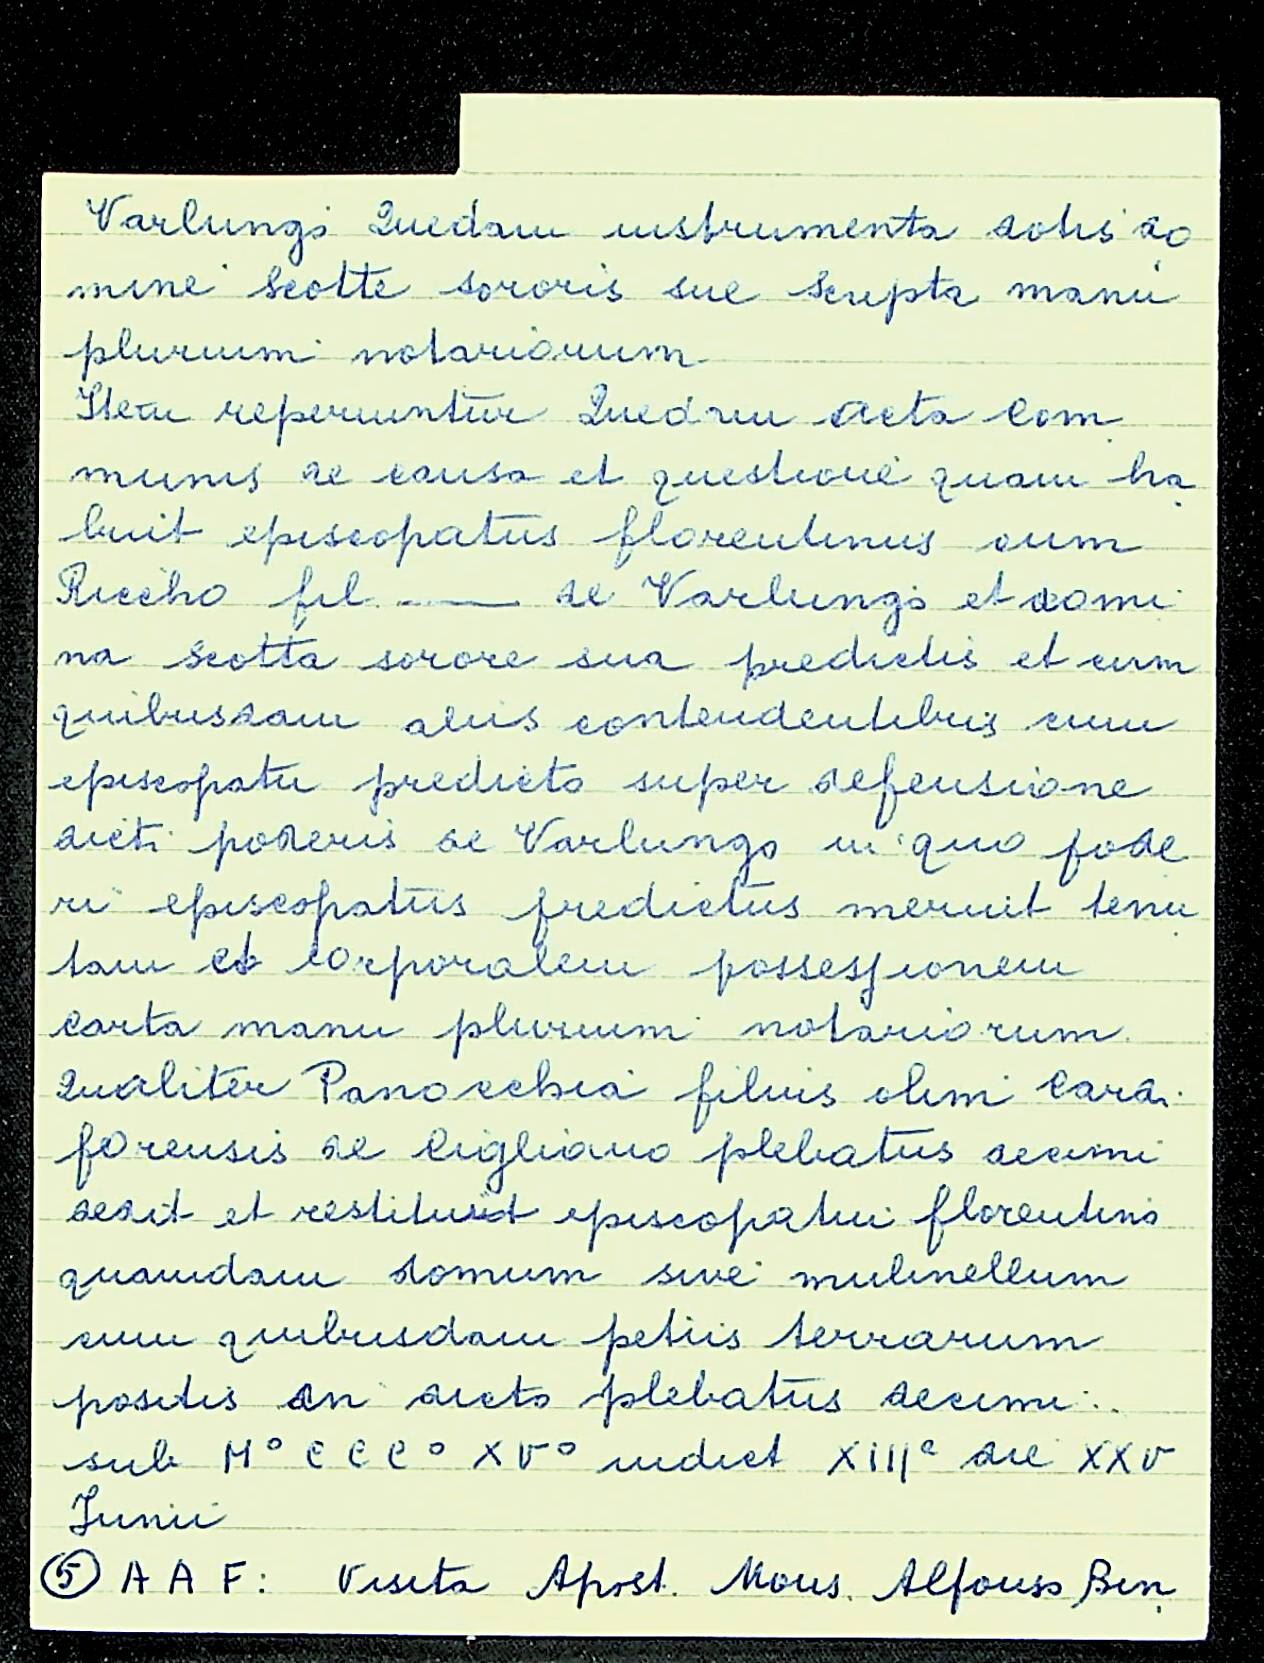 Varlungo Quedam instrumenta dotis do
mine Scotte sororis sue scripta manu
plurium notariorum
Item reperiuntur Quedam acta Com
munis de causa et questione quam ha
buit episcopatus florentinus cum
Riccho fil. —— de Varlungo et domi
na Scotta sorore sua predictis et cum
quibusdam aliis contendentibus cum
episcopatu predicto super defensione
dicti poderis de Varlungo in quo pode
ri episcopatus predictus meruit tenu
tam et corporalem possessionem
carta manu plurium notariorum.
Qualiter Panocchia filius olim Cara.
forensis de Cigliano plebatus decimi
dedit et restituit episcopatui florentino
quamdam domum sive mulinellum
cum quibusdam petiis terrarum
positis in dicto plebatus decimi..
sub M° C C C° X V° indict XIIIe die XXV
Junii
⑤ A A F: Visita Apost. Mons. Alfonso Bin